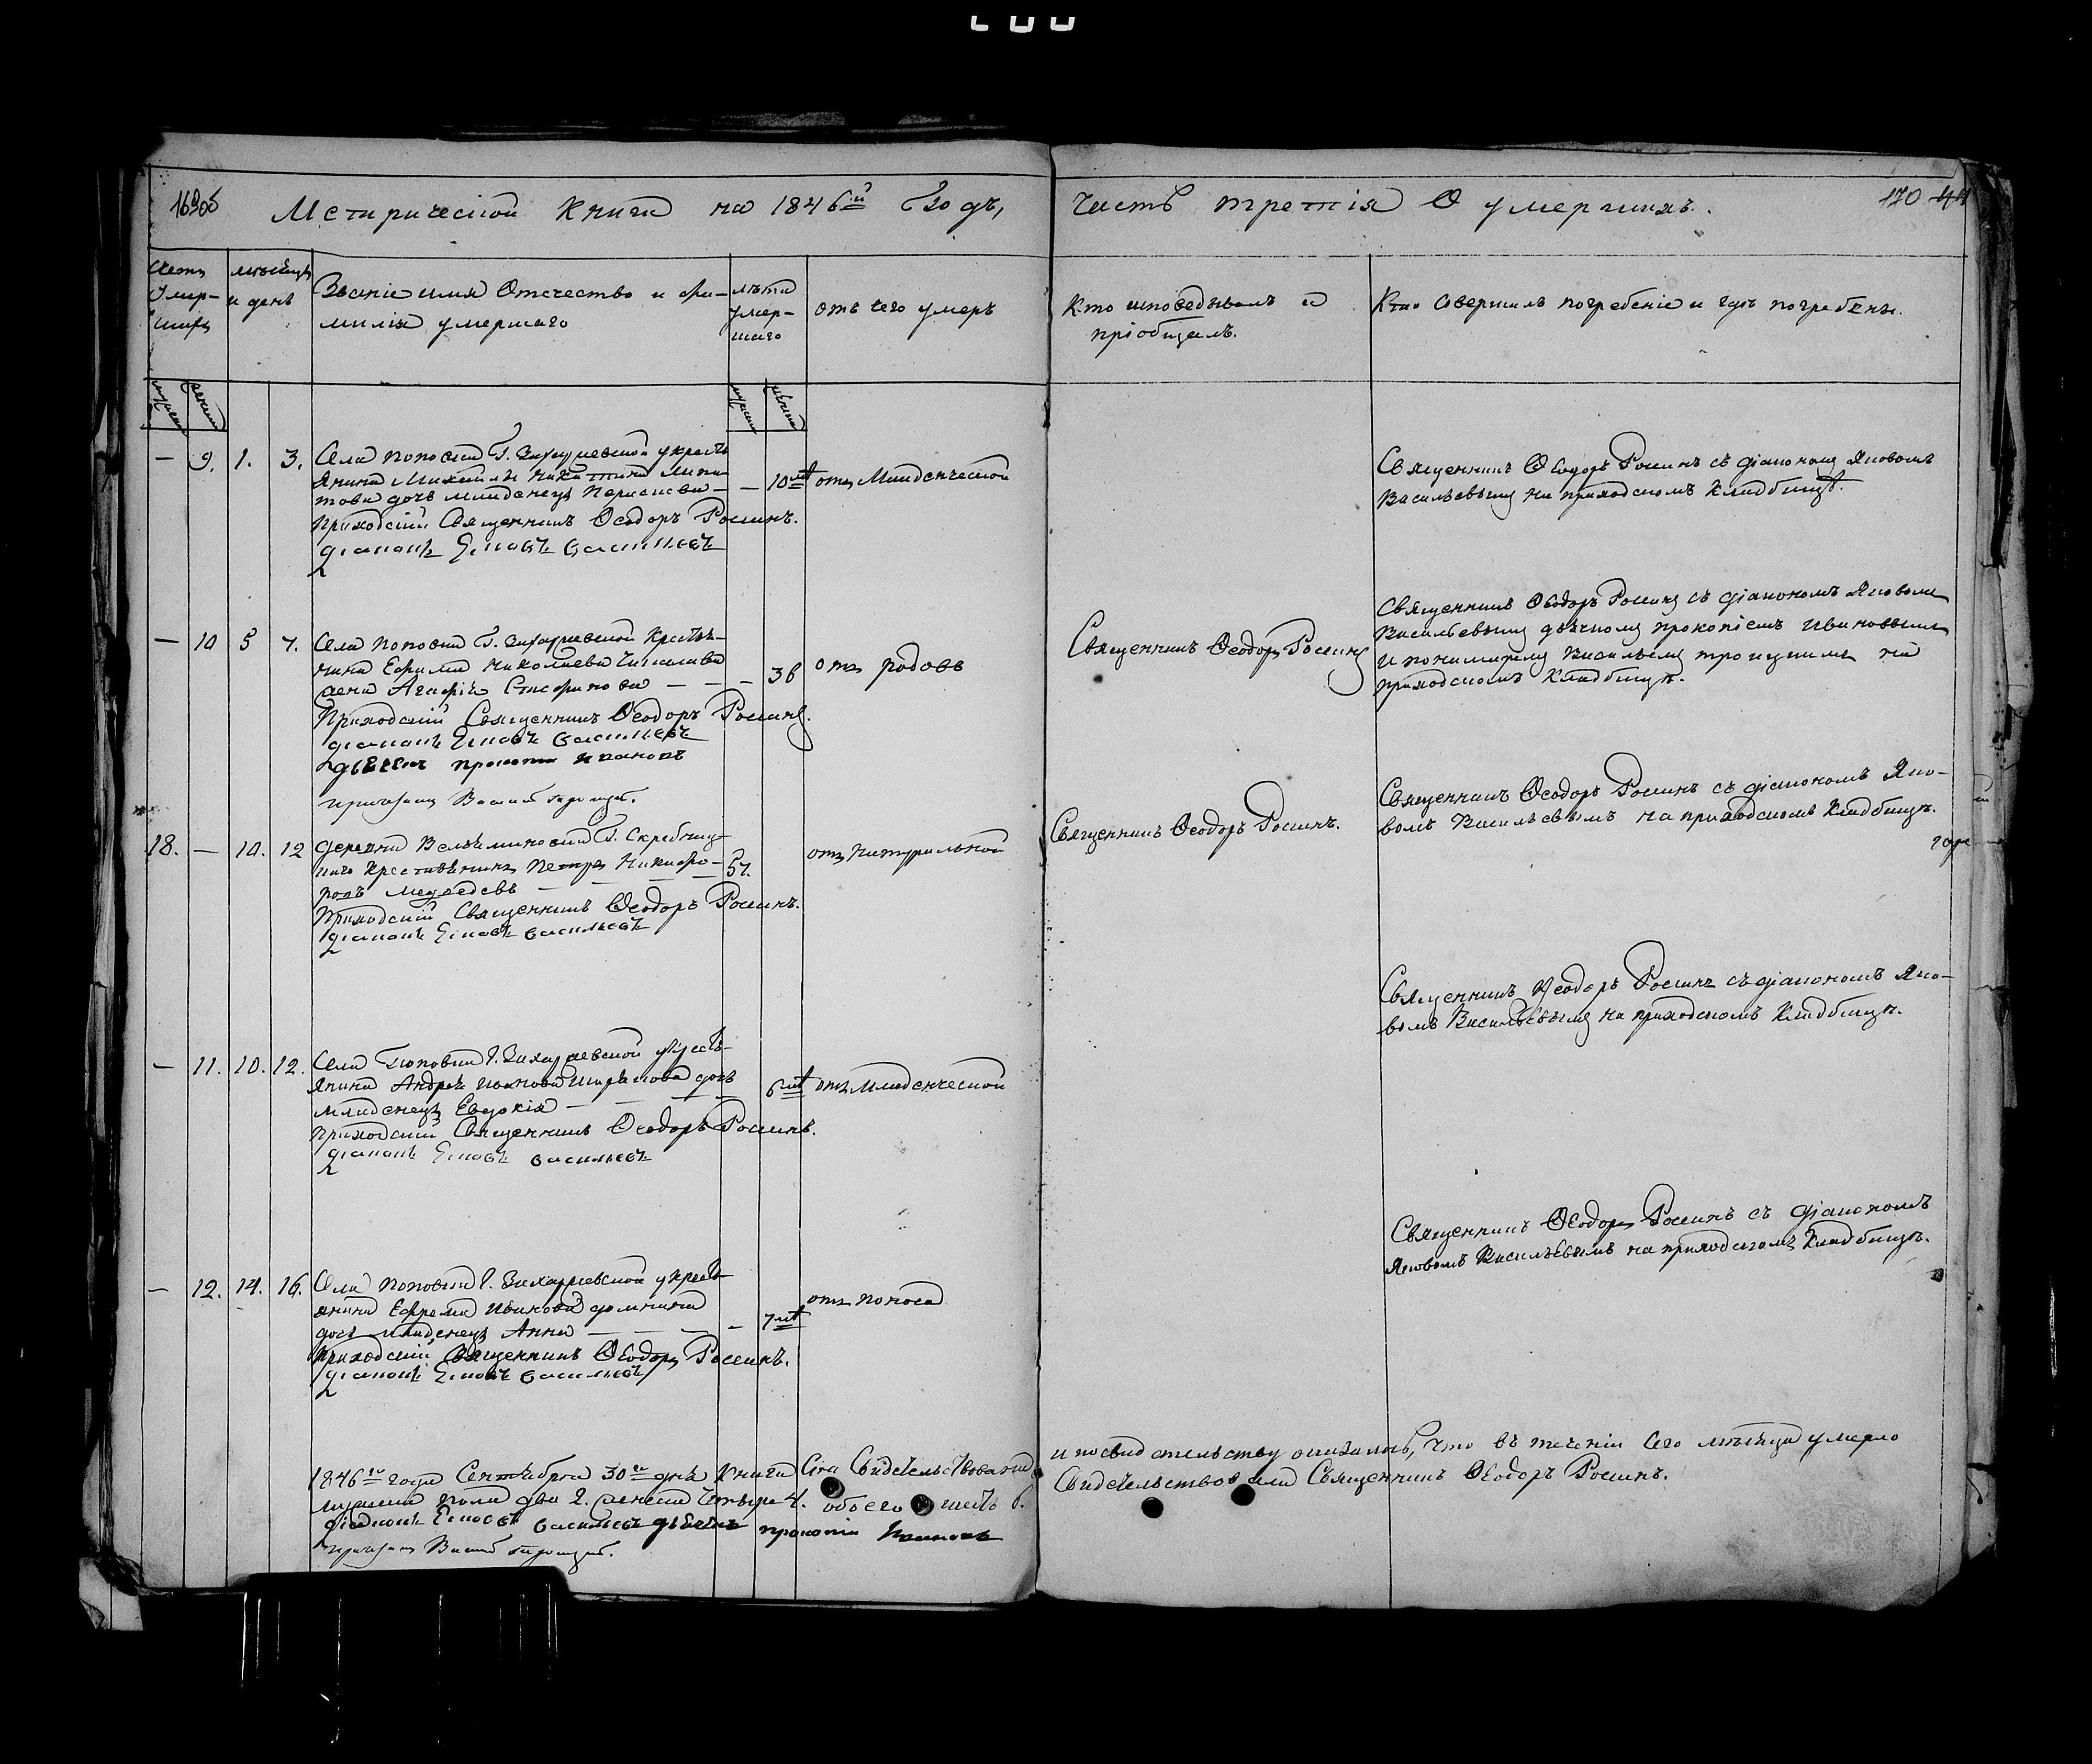 169об
Метрической книги на 1846й Годъ,
Часть третія О умершихъ.
170 44
Счетъ умер-
шихъ
мѣсяцъ
и день
Званіе имя Отчество и фа-
милія умершаго
лѣта
умер-
шаго
отъ чего умеръ
Кто исповедывалъ и
пріобщалъ.
Кто совершилъ погребеніе и гдѣ погребены.
мужеска
женска
мужеска
женска
— 9. 1. 3. Села Поповки Г. у крестъ
янина Михаила Никитина
това дочь младенецъ
— 10 отъ Младенческой
Приходскій Священникъ Ѳеодоръ Росинъ.
діаконъ Іяковъ Васильевъ
Священникъ Ѳеодоръ Росинъ съ діакономъ Яковомъ
Васильевымъ на приходскомъ кладбищѣ.
— 10 5 7. Села Поповки Г. Крестья-
нина Ефима Николаева
жена Агафія — — — 36 отъ родовъ
Приходскій Священникъ Ѳеодоръ Росинъ.
діаконъ Іяковъ Васильевъ
дьячекъ прокопій Ивановъ
пономарь Василій Троицкій.
Священникъ Ѳеодоръ Росинъ
Священникъ Ѳеодоръ Росинъ съ діакономъ Яковомъ
Васильевымъ дьячкомъ прокопіемъ Ивановымъ
и пономаремъ Васильемъ троицкимъ на
приходскомъ кладбищѣ.
18. — 10. 12 деревни Г.
Крестьянинъ Петръ Никифо-
ровъ Медведевъ — — — 57. отъ натуральной
Приходскій Священникъ Ѳеодоръ Росинъ.
діаконъ Іяковъ Васильевъ
Священникъ Ѳеодоръ Росинъ.
Священникъ Ѳеодоръ Росинъ съ діакономъ Яко-
вомъ Васильевымъ на приходскомъ кладбищѣ.
— 11. 10. 12. Села Поповки Г. у крестъ-
янина Андрея Иванова дочь
младенецъ Евдокія — — — — 6 отъ Младенческой
приходскій Священникъ Ѳеодоръ Росинъ.
діаконъ Іяковъ Васильевъ
Священникъ Ѳеодоръ Росинъ съ діакономъ Яко-
вомъ Васильевымъ на приходскомъ кладбищѣ.
— 12. 14. 16. Села Поповки Г. у крестъ
янина Ефрема Иванова
дочь младенецъ Анна — — — — 7 отъ поноса
Приходскій Священникъ Ѳеодоръ Росинъ.
діаконъ Іяковъ Васильевъ
Священникъ Ѳеодоръ Росинъ съ діакономъ
Яковомъ Васильевымъ на приходскомъ кладбищѣ.
1846го года Сентября 30го дня книга Сія Свидетельствована
и по свидетельству оказалось, что въ теченіи сего мѣсяца умерло
мужеска пола два 2. женска четыре 4. обоего шесть 6.
Свидетельствовали Священникъ Ѳеодоръ Росинъ.
діаконъ Іяковъ Васильевъ дьячекъ прокопій Ивановъ
пономарь Василій Троицкій.